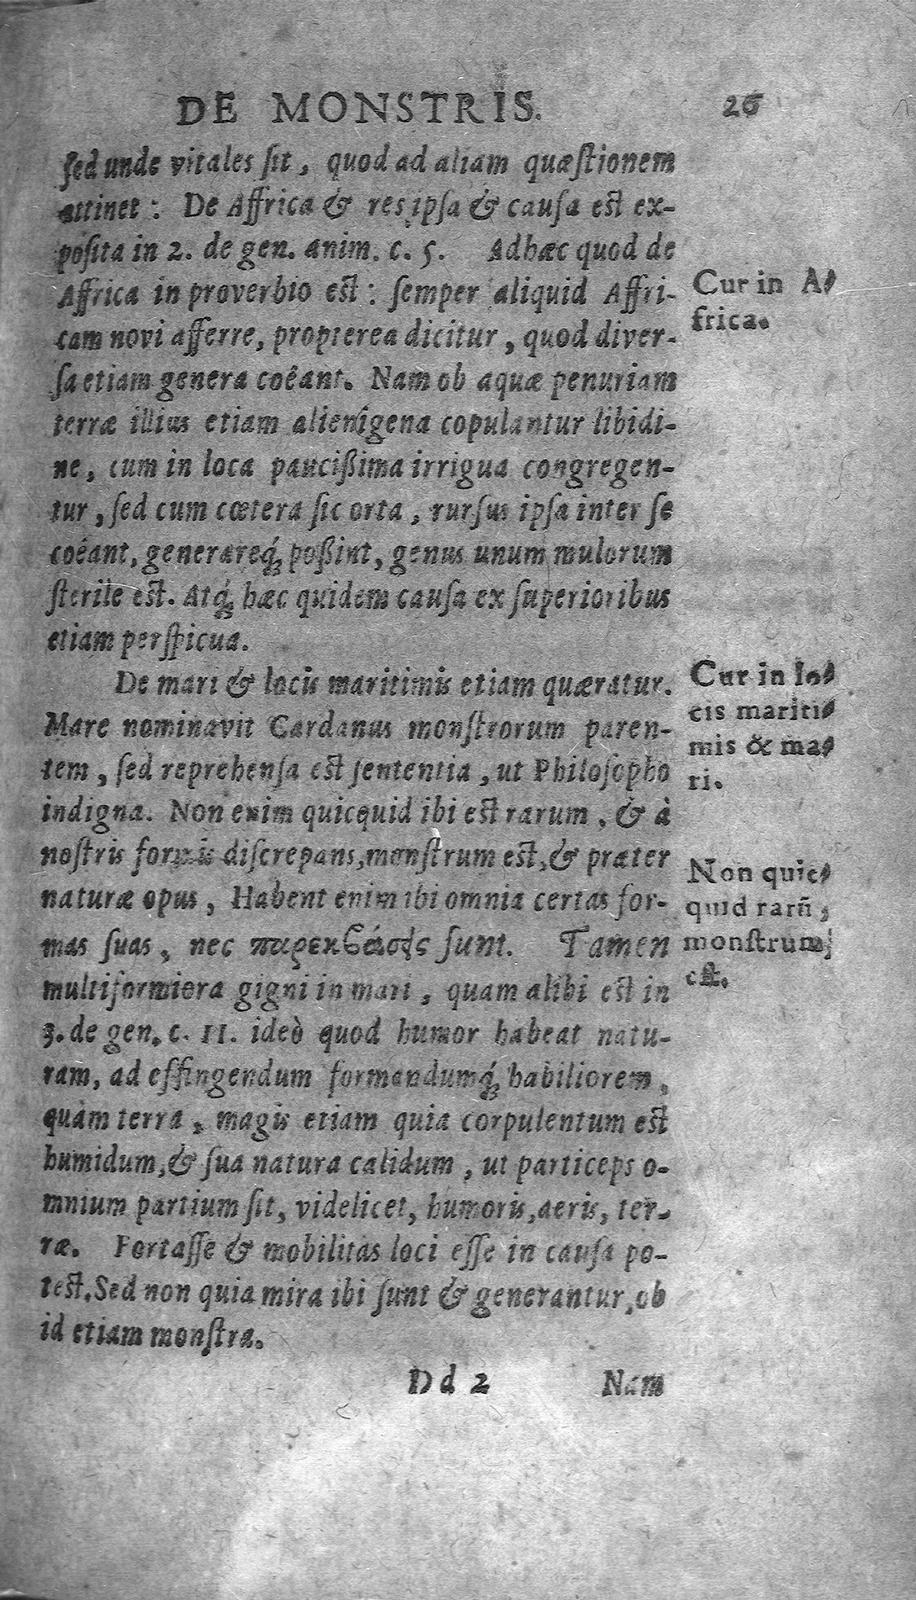 DE MONSTRIS. 26
sed unde vitales sit, quod ad aliam quæstionem
attinet: De Affrica & res ipsa & causa est ex-
posita in 2. de gen. anim. c. 5. Adhæc quod de
Affrica in proverbio est: semper aliquid Affri-
cam novi afferre, propterea dicitur, quod diver-
sa etiam genera coéant. Nam ob aquæ penuriam
terræ illius etiam alienigena copulantur libidi-
ne, cum in loca paucißima irrigua congregen-
tur, sed cum cœtera sic orta, rursus ipsa inter se
coéant, generareq́; poßint, genus unum mulorum
sterile est. Atq́; hæc quidem causa ex superioribus
etiam perspicua.
Cur in A-
frica.
De mari & locis maritimis etiam quæratur.
Mare nominavit Cardanus monstrorum paren-
tem, sed reprehensa est sententia, ut Philosopho
indigna. Non enim quicquid ibi est rarum, & à
nostris formis discrepans, monstrum est, & præter
naturæ opus, Habent enim ibi omnia certas for-
mas suas, nec παρεκβάσεις sunt. Tamen
multiformiora gigni in mari, quam alibi est in
3. de gen. c. 11. ideò quod humor habeat natu-
ram, ad effingendum formandumq́; habiliorem,
quàm terra, magis etiam quia corpulentum est
humidum, & sua natura calidum, ut particeps o-
mnium partium sit, videlicet, humoris, aeris, ter-
ræ. Fortasse & mobilitas loci esse in causa po-
test. Sed non quia mira ibi sunt & generantur, ob
id etiam monstra.
Cur in lo-
cis mariti-
mis & ma-
ri.
Non quic-
quid rarũ,
monstrum
est.
Dd 2 Nam